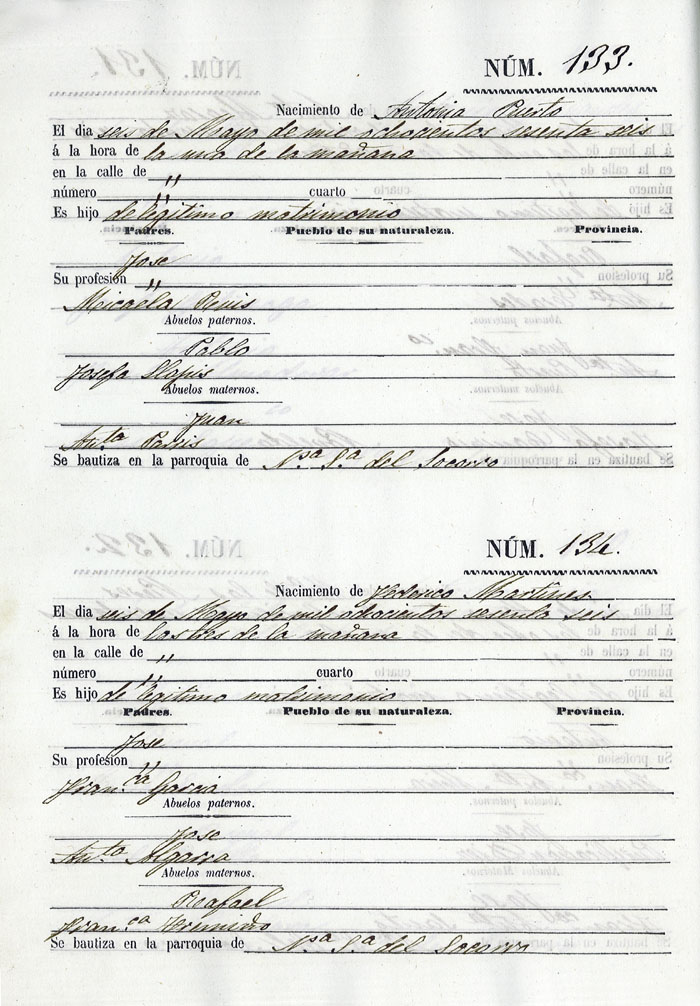 NÚM. 133.
Nacimiento de Antonia Puerto
El dia seis de Mayo de mil ochocientos sesenta seis
á la hora de la una de la mañana
en la calle de "
número " cuarto
Es hijo de legitimo matrimonio
Padres. Pueblo de su naturaleza. Provincia.
Jose
Su profesión "
Micaela
Abuelos paternos.
Pablo
Josefa Llopis
Abuelos maternos.
Juan
Ant.ta
Se bautiza en la parroquia de N.sa S.a del Socorro
NÚM. 134.
Nacimiento de Federico Martines
El dia seis de Mayo de mil ochocientos sesenta seis
á la hora de las tres de la mañana
en la calle de "
número " cuarto
Es hijo de legitimo matrimonio
Padres. Pueblo de su naturaleza. Provincia.
Jose
Su profesión "
Fran.ca Garcia
Abuelos paternos.
Jose
Ant.ta Algarra
Abuelos maternos.
Rafael
Fran.ca
Se bautiza en la parroquia de N.sa S.a del Socorro